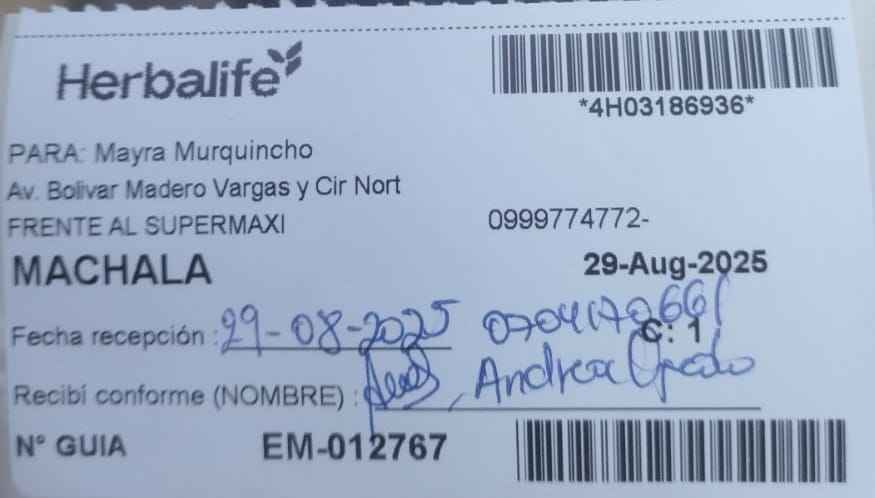 Herbalife
*4H03186936*
PARA: Mayra Murquincho
Av. Bolivar Madero Vargas y Cir Nort
FRENTE AL SUPERMAXI 0999774772-
MACHALA 29-Aug-2025
Fecha recepción : 29-08-2025 0704170661 C: 1
Recibí conforme (NOMBRE) : Andrea
N° GUIA EM-012767